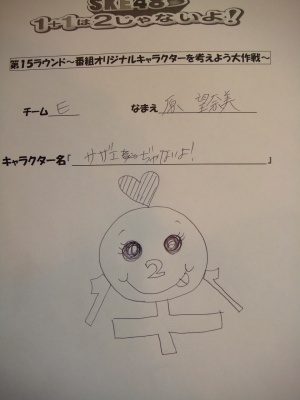 SKE48の
1+1は2じゃないよ!
第15ラウンド~番組オリジナルキャラクターを考えよう大作戦~
チーム E なまえ 原 望奈美
キャラクター名『 サザエ じゃないよ! 』
2